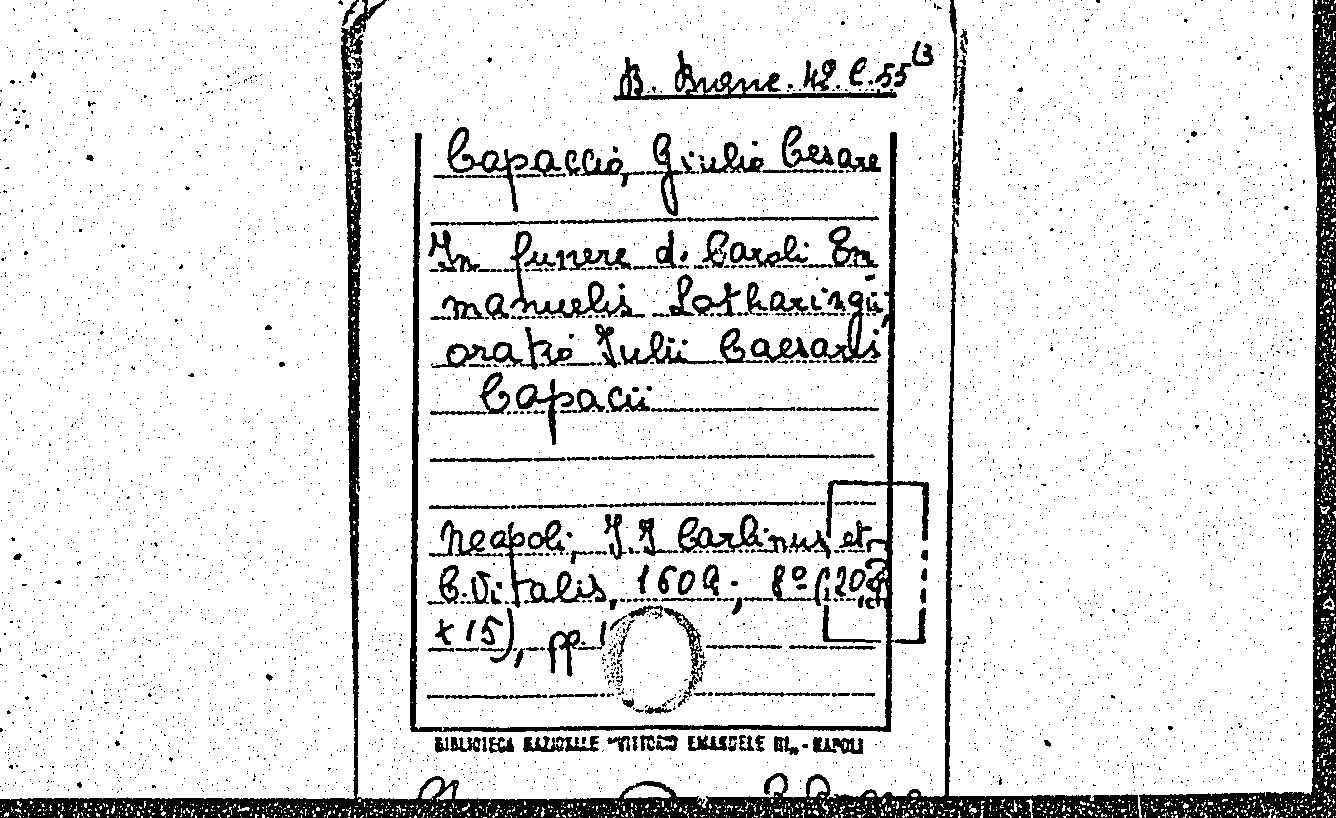 B. Branc. 42 C. 55 (3
Capaccio, Giulio Cesare
In funere d. Caroli Em
manuelis Lotharingii,
oratio Iulii Caesaris
Capacii
Neapoli, I. I Carlinus et
C. Vitalis, 1609; 8º (20,
x 15), pp.
BIBLIOTECA NAZIONALE "VITTORIO EMANUELE III„ - NAPOLI